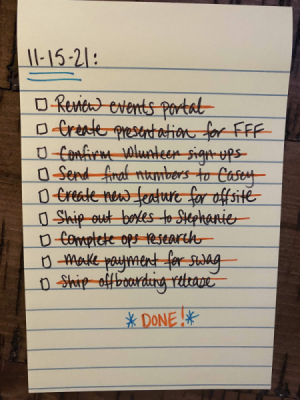 11-15-21:
Review events portal
Create presentation for FFF
Confirm Volunteer sign-ups
Send final numbers to Casey
Create new feature for offsite
Ship out boxes to Stephanie
Complete ops research
make payment for swag
Ship offboarding release
* DONE! *